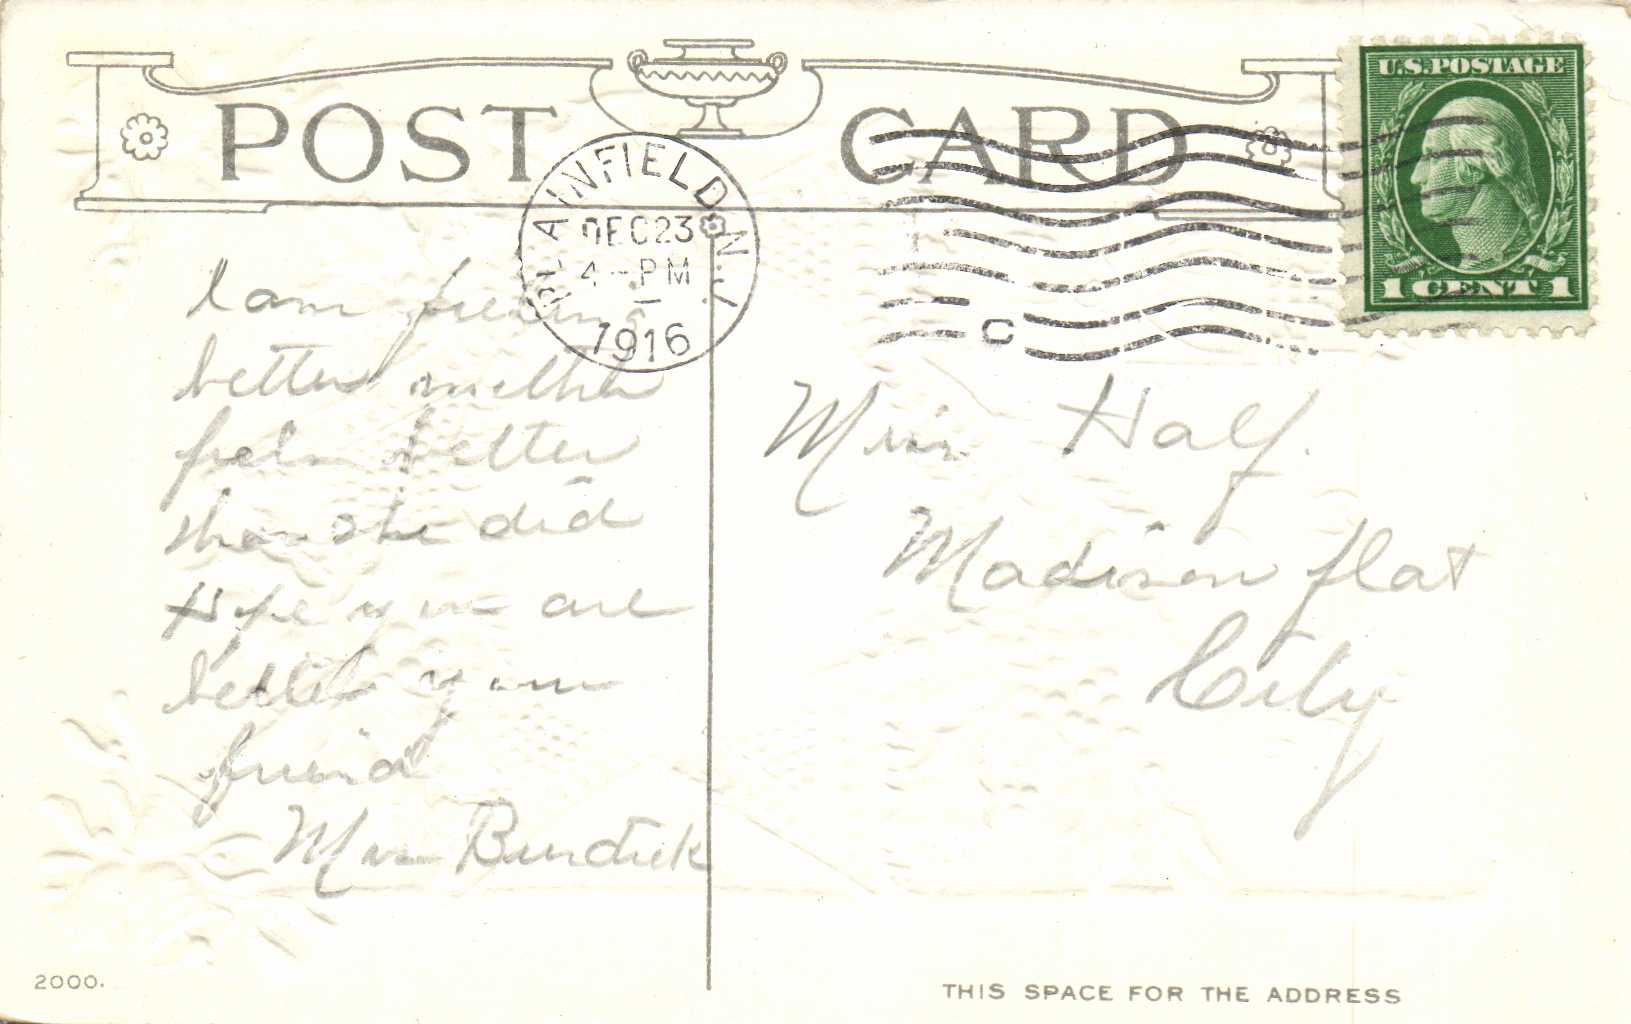 POST CARD
U.S. POSTAGE
1 CENT 1
PLAINFIELD N.J.
DEC 23
4 - PM
1916
C
I am feeling
better mother
feels better
than she did
Hope you are
better your
friend
Mrs Burdick
Miss Half.
Madison flat
City
2000.
THIS SPACE FOR THE ADDRESS